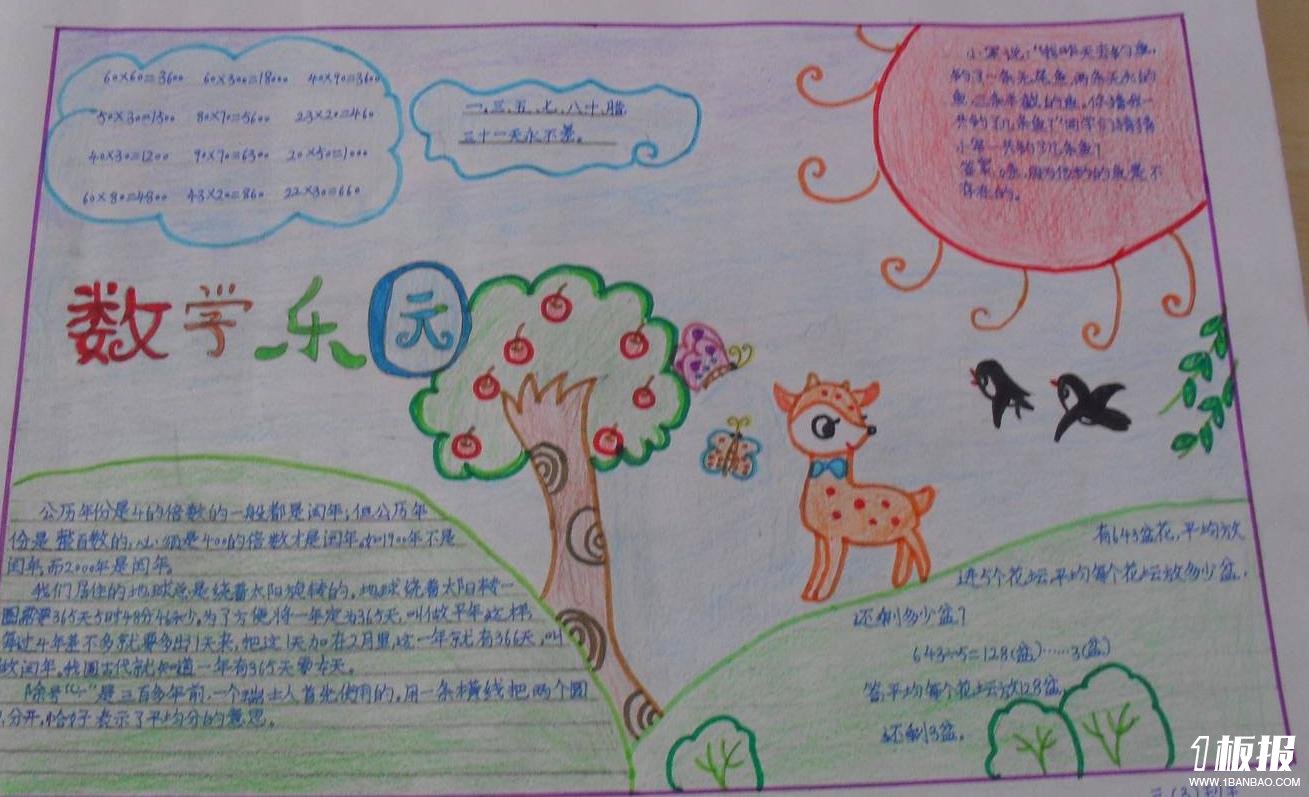 60×60=3600 60×300=18000 40×90=3600
50×30=1500 80×70=5600 23×20=460
40×30=1200 90×70=6300 20×50=1000
60×80=4800 43×20=860 22×30=660
一、三、五、七、八十、腊,
三十一天永不差。
小军说:“我昨天去钓鱼,
钓了一条无尾鱼,两条无头的
鱼,三条半截的鱼。你猜我一
共钓了几条鱼?”同学们猜猜
小军一共钓了几条鱼?
答案:0条,因为他钓的鱼是不
存在的。
数学乐园
公历年份是4的倍数的一般都是闰年;但公历年
份是整百数的,必须是400的倍数才是闰年。如1900年不是
闰年,而2000年是闰年。
我们居住的地球总是绕着太阳旋转的,地球绕着太阳转一
圈需要365天5时48分46秒。为了方便,将一年定为365天,叫做平年;这样,
每过4年差不多就要多出1天来,把这1天加在2月里,这一年就有366天,叫
做闰年。我国古代就知道一年有365天零
除号“÷”是三百多年前,一个瑞士人首先使用的,用一条横线把两个圆
分开,恰好表示了平均分的意思。
有643盆花,平均放
进5个花坛,平均每个花坛放多少盆,
还剩多少盆?
643÷5=128(盆)……3(盆)
答:平均每个花坛放128盆,
还剩3盆。
1板报
WWW.1BANBAO.COM